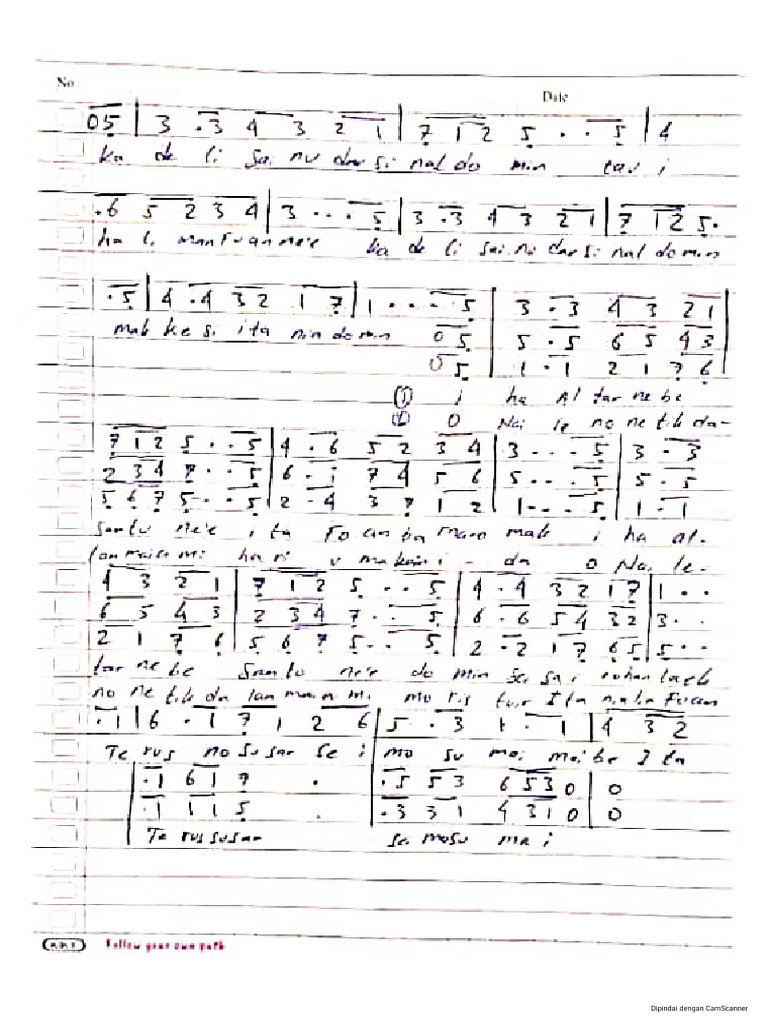 No
Date
05 | 3 .3 4 3 2 1 | 7 1 2 5 . . 5 | 4
ka de li sai nu dar si nal do min tau i
.6 5 2 3 4 | 3 . . . 5 | 3 .3 4 3 2 1 | 7 12 5.
ha li man Fuan ne'e ka de li sai nu dar si nal do min
.5 | 4 .4 3 2 1 7 | 1 . . . . 5 | 3 . 3 4 3 2 1
mak ke si ita nin do min 0 5 | 5 . 5 6 5 4 3
0 5 | 1 . 1 2 1 7 6
① i ha Al tar ne be
② O Nai le no ne tik da-
7 1 2 5 . . 5 | 4 . 6 5 2 3 4 | 3 . . . 5 | 3 . 3
2 3 4 7 . . 5 | 6 . i 7 4 5 6 | 5 . . . 5 | 5 . 5
5 6 7 5 . . 5 | 2 . 4 3 7 1 2 | 1 . . . 5 | 1 . 1
Santu ne'e ita Fo an ba maro mak i ha al-
lan mai sa mi ha ri u - da O Nai le-
4 3 2 1 | 7 1 2 5 . . . 5 | 4 . 4 3 2 1 7 | 1 . .
6 5 4 3 | 2 3 4 7 . . . 5 | 6 . 6 5 4 3 2 | 3 . .
2 1 7 6 | 5 6 7 5 . . . 5 | 2 . 2 1 7 6 5 | 5 . .
tar ne be Santo ne'e do min sei sa i
no ne tik da lan mo ris tur Ita nia Fuan
. 1 | 6 . 1 7 1 2 6 | 5 . 3 1 . 1 | 4 3 2
Te rus no susar se i mo su mai mai be I ta
| .1 6 1 7 . | .5 5 3 6 5 3 0 | 0
| .1 1 1 5 . | .3 3 1 4 3 1 0 | 0
Te rus susar sei mosu ma i
Follow your own path
Dipindai dengan CamScanner